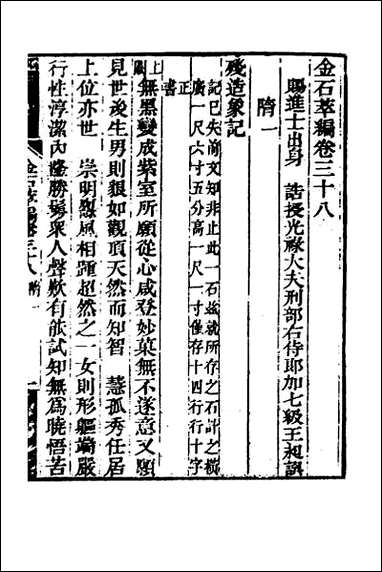 金石萃編卷三十八
賜進士出身 誥授光祿大夫刑部右侍郎加七級王昶譔
隋一
殘造象記
記已失前文知非止此一石茲就所存之石計之橫
廣一尺六寸五分高一尺一寸僅存十四行行十字
正書
上闕無黑變成紫室所願從心咸登妙菓無不遂意又願
見世後生男則貌如觀頂天然而知智 慧孤秀任居
上位亦世 崇明烈風相踵超然之一女則形軀端嚴
行性淳潔內逢勝髣衆人聲歎有能試知無為曉悟苦
金石萃編卷三十八 隋一
一